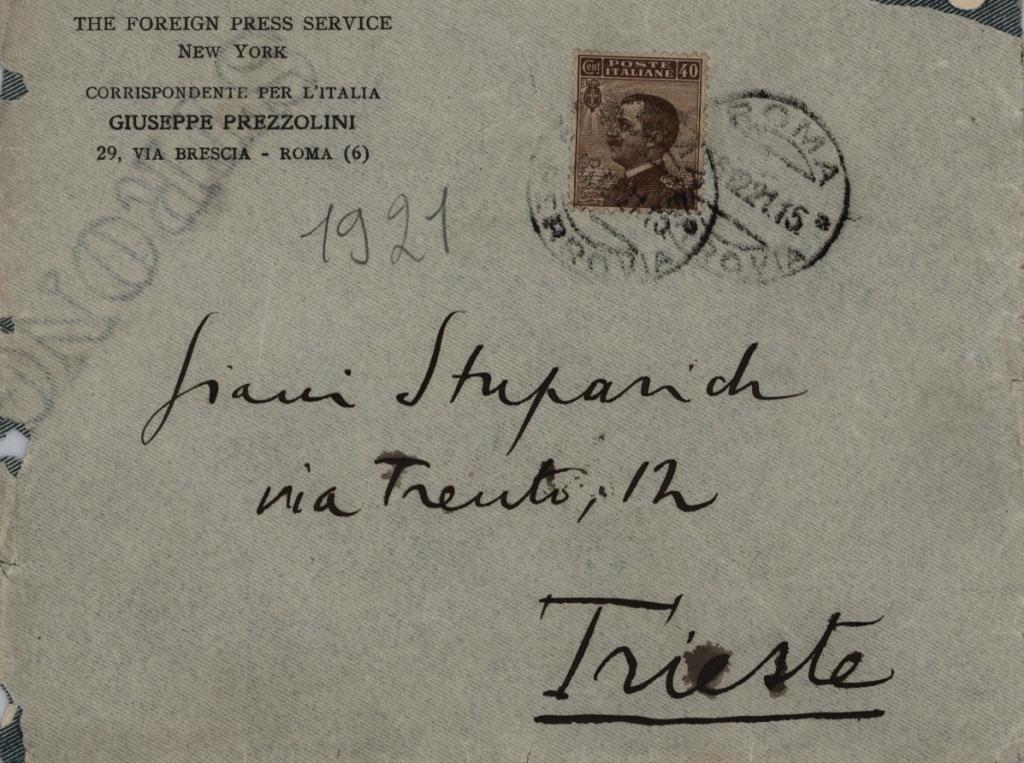 THE FOREIGN PRESS SERVICE
NEW YORK
CORRISPONDENTE PER L'ITALIA
GIUSEPPE PREZZOLINI
29, VIA BRESCIA - ROMA (6)
Cent POSTE ITALIANE 40
ROMA
21.15
FERROVIA
1921
Giani Stuparich
via Trento, 12
Trieste